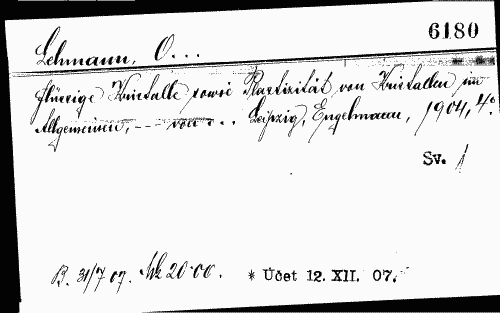 6180
Lehmann, O...
flüssige Kristalle sowie Plastizität von Kristallen im
Allgemeinen, --- von ... Leipzig, Engelmann, 1904, 4°.
Sv. 1
B. 31/7 07. Mk 20·00. * Účet 12. XII. 07.